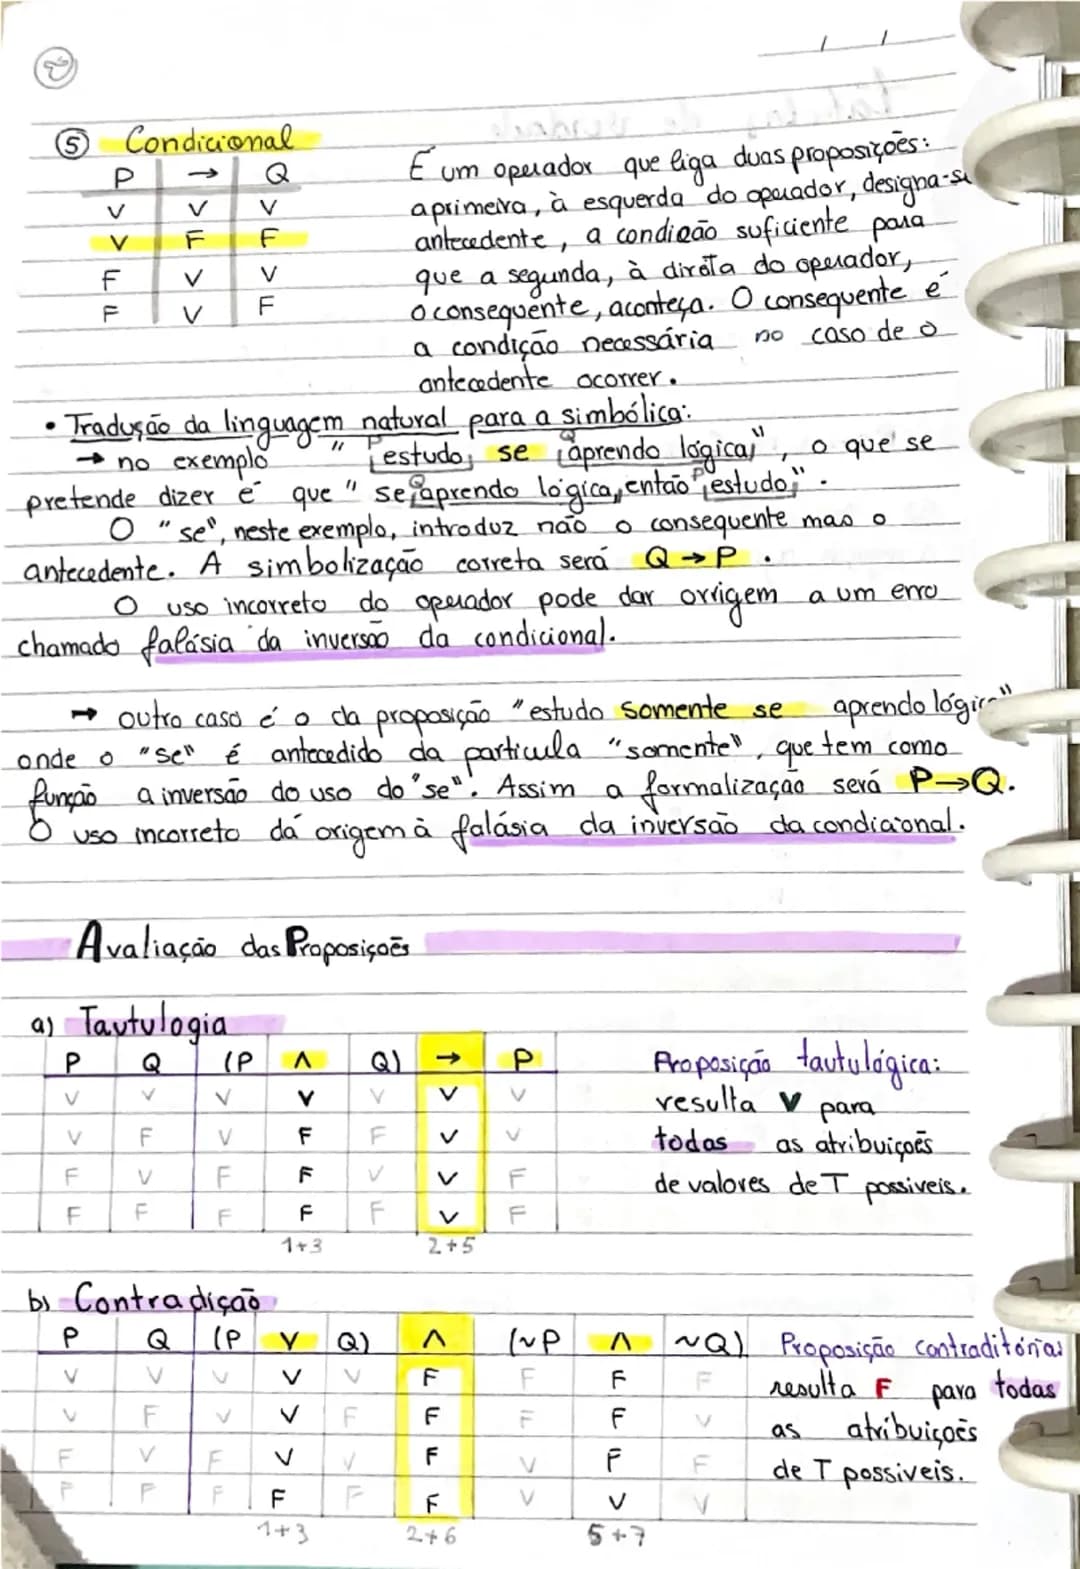 2
/ /
⑤ Condicional
P | → | Q
V | V | V
V | F | F
F | V | V
F | V | F
É um operador que liga duas proposições:
a primeira, à esquerda do operador, designa-se
antecedente, a condição suficiente para
que a segunda, à direita do operador,
o consequente, aconteça. O consequente é
a condição necessária no caso de o
antecedente ocorrer.
• Tradução da linguagem natural para a simbólica:
P Q
→ no exemplo " estudo, se aprendo lógica,", o que se
Q P
pretende dizer é que " se aprendo lógica, então estudo,".
O "se", neste exemplo, introduz não o consequente mas o
antecedente. A simbolização correta será Q → P .
O uso incorreto do operador pode dar orrigem a um erro
chamado falásia da inversão da condicional.
→ outro caso é o da proposição "estudo somente se aprendo lógica"
onde o "se" é antecedido da particula "somente", que tem como
função a inversão do uso do "se". Assim a formalização será P → Q.
O uso incorreto dá origem à falásia da inversão da condicional.
Avaliação das Proposições
a) Tautulogia
P | Q | (P ∧ Q) → P
V | V | V V V V V
V | F | V F F V V
F | V | F F V V F
F | F | F F F V F
1+3 2+5
Proposição tautulógica:
resulta V para
todas as atribuições
de valores de T possiveis.
b) Contradição
P | Q | (P V Q) ∧ (~P ∧ ~Q)
V | V | V V V F F F F
V | F | V V F F F F V
F | V | F V V F V F F
F | F | F F F F V V V
1+3 2+6 5+7
Proposição contraditória:
resulta F para todas
as atribuições
de T possiveis.